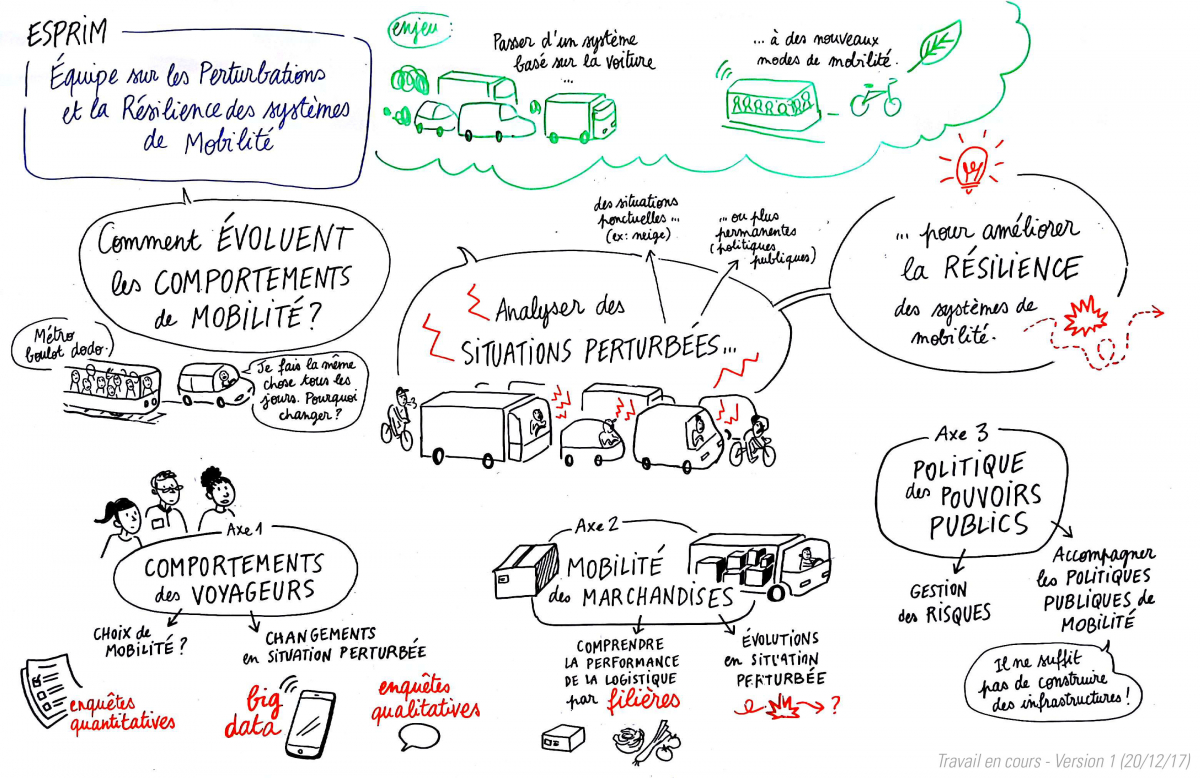 ESPRIM
Équipe sur les Perturbations
et la Résilience des systèmes
de Mobilité
enjeu :
Passer d'un système
basé sur la voiture
...
... à des nouveaux
modes de mobilité.
Comment ÉVOLUENT
les COMPORTEMENTS
de MOBILITÉ ?
Métro
boulot dodo.
Je fais la même
chose tous les
jours. Pourquoi
changer ?
des situations
ponctuelles ...
(ex : neige)
... ou plus
permanentes
(politiques
publiques)
Analyser des
SITUATIONS PERTURBÉES ...
... pour améliorer
la RÉSILIENCE
des systèmes de
mobilité.
Axe 1
COMPORTEMENTS
des VOYAGEURS
CHOIX de
MOBILITÉ ?
CHANGEMENTS
en SITUATION PERTURBÉE
enquêtes
quantitatives
big
data
enquêtes
qualitatives
Axe 2
MOBILITÉ
des MARCHANDISES
COMPRENDRE
LA PERFORMANCE
DE LA LOGISTIQUE
par filières
ÉVOLUTIONS
en SITUATION
PERTURBÉE
?
Axe 3
POLITIQUE
des POUVOIRS
PUBLICS
GESTION
des RISQUES
Accompagner
les POLITIQUES
PUBLIQUES de
MOBILITÉ
Il ne suffit
pas de construire
des infrastructures !
Travail en cours - Version 1 (20/12/17)